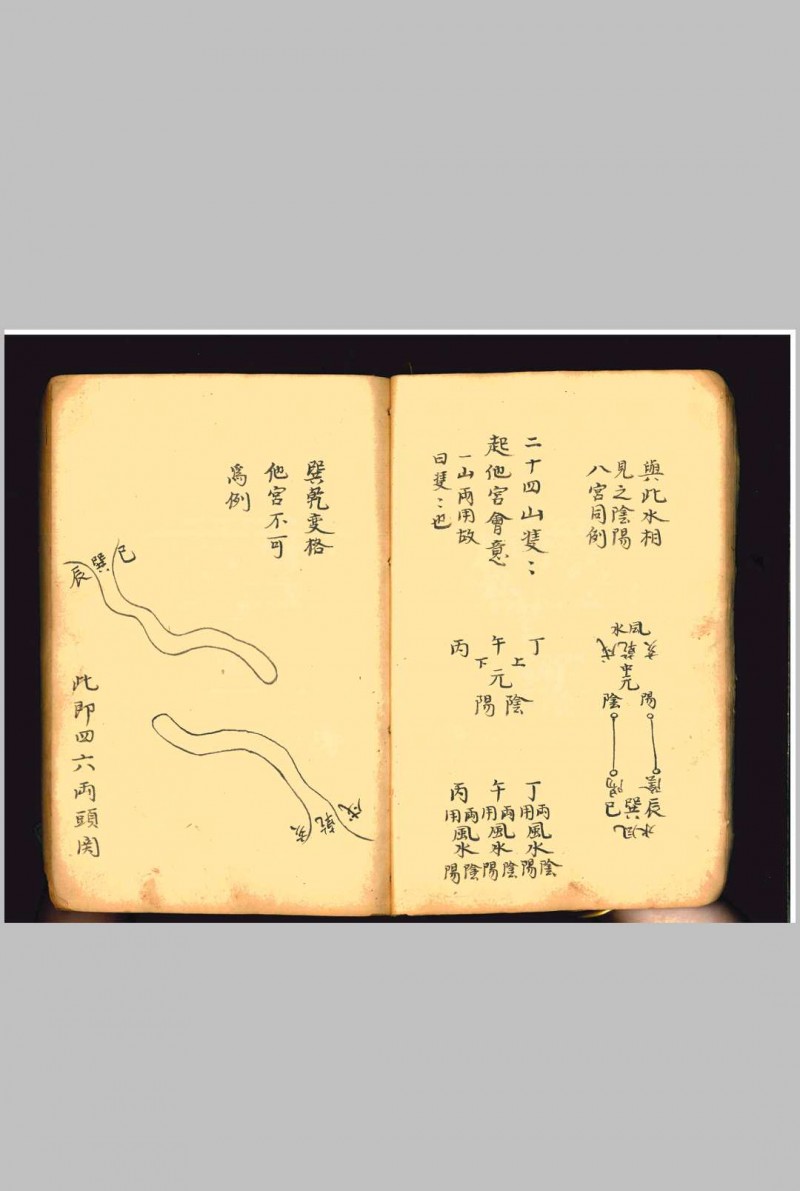 與此水相
見之陰陽
八宮同例
水風
戌乾亥
中
元
陰 陽
陽 陰
巳巽辰
水風
二十四山雙〻
起他宮會意
一山兩用故
曰雙〻也
丙 午 丁
下 上
元
陽 陰
丁
兩用
風
水
陰陽
午
兩用
風
水
陰陽
丙
兩用
風
水
陰陽
巽乾變格
他宮不可
爲例
辰 巽 巳
戌 乾 亥
此即四六兩頭